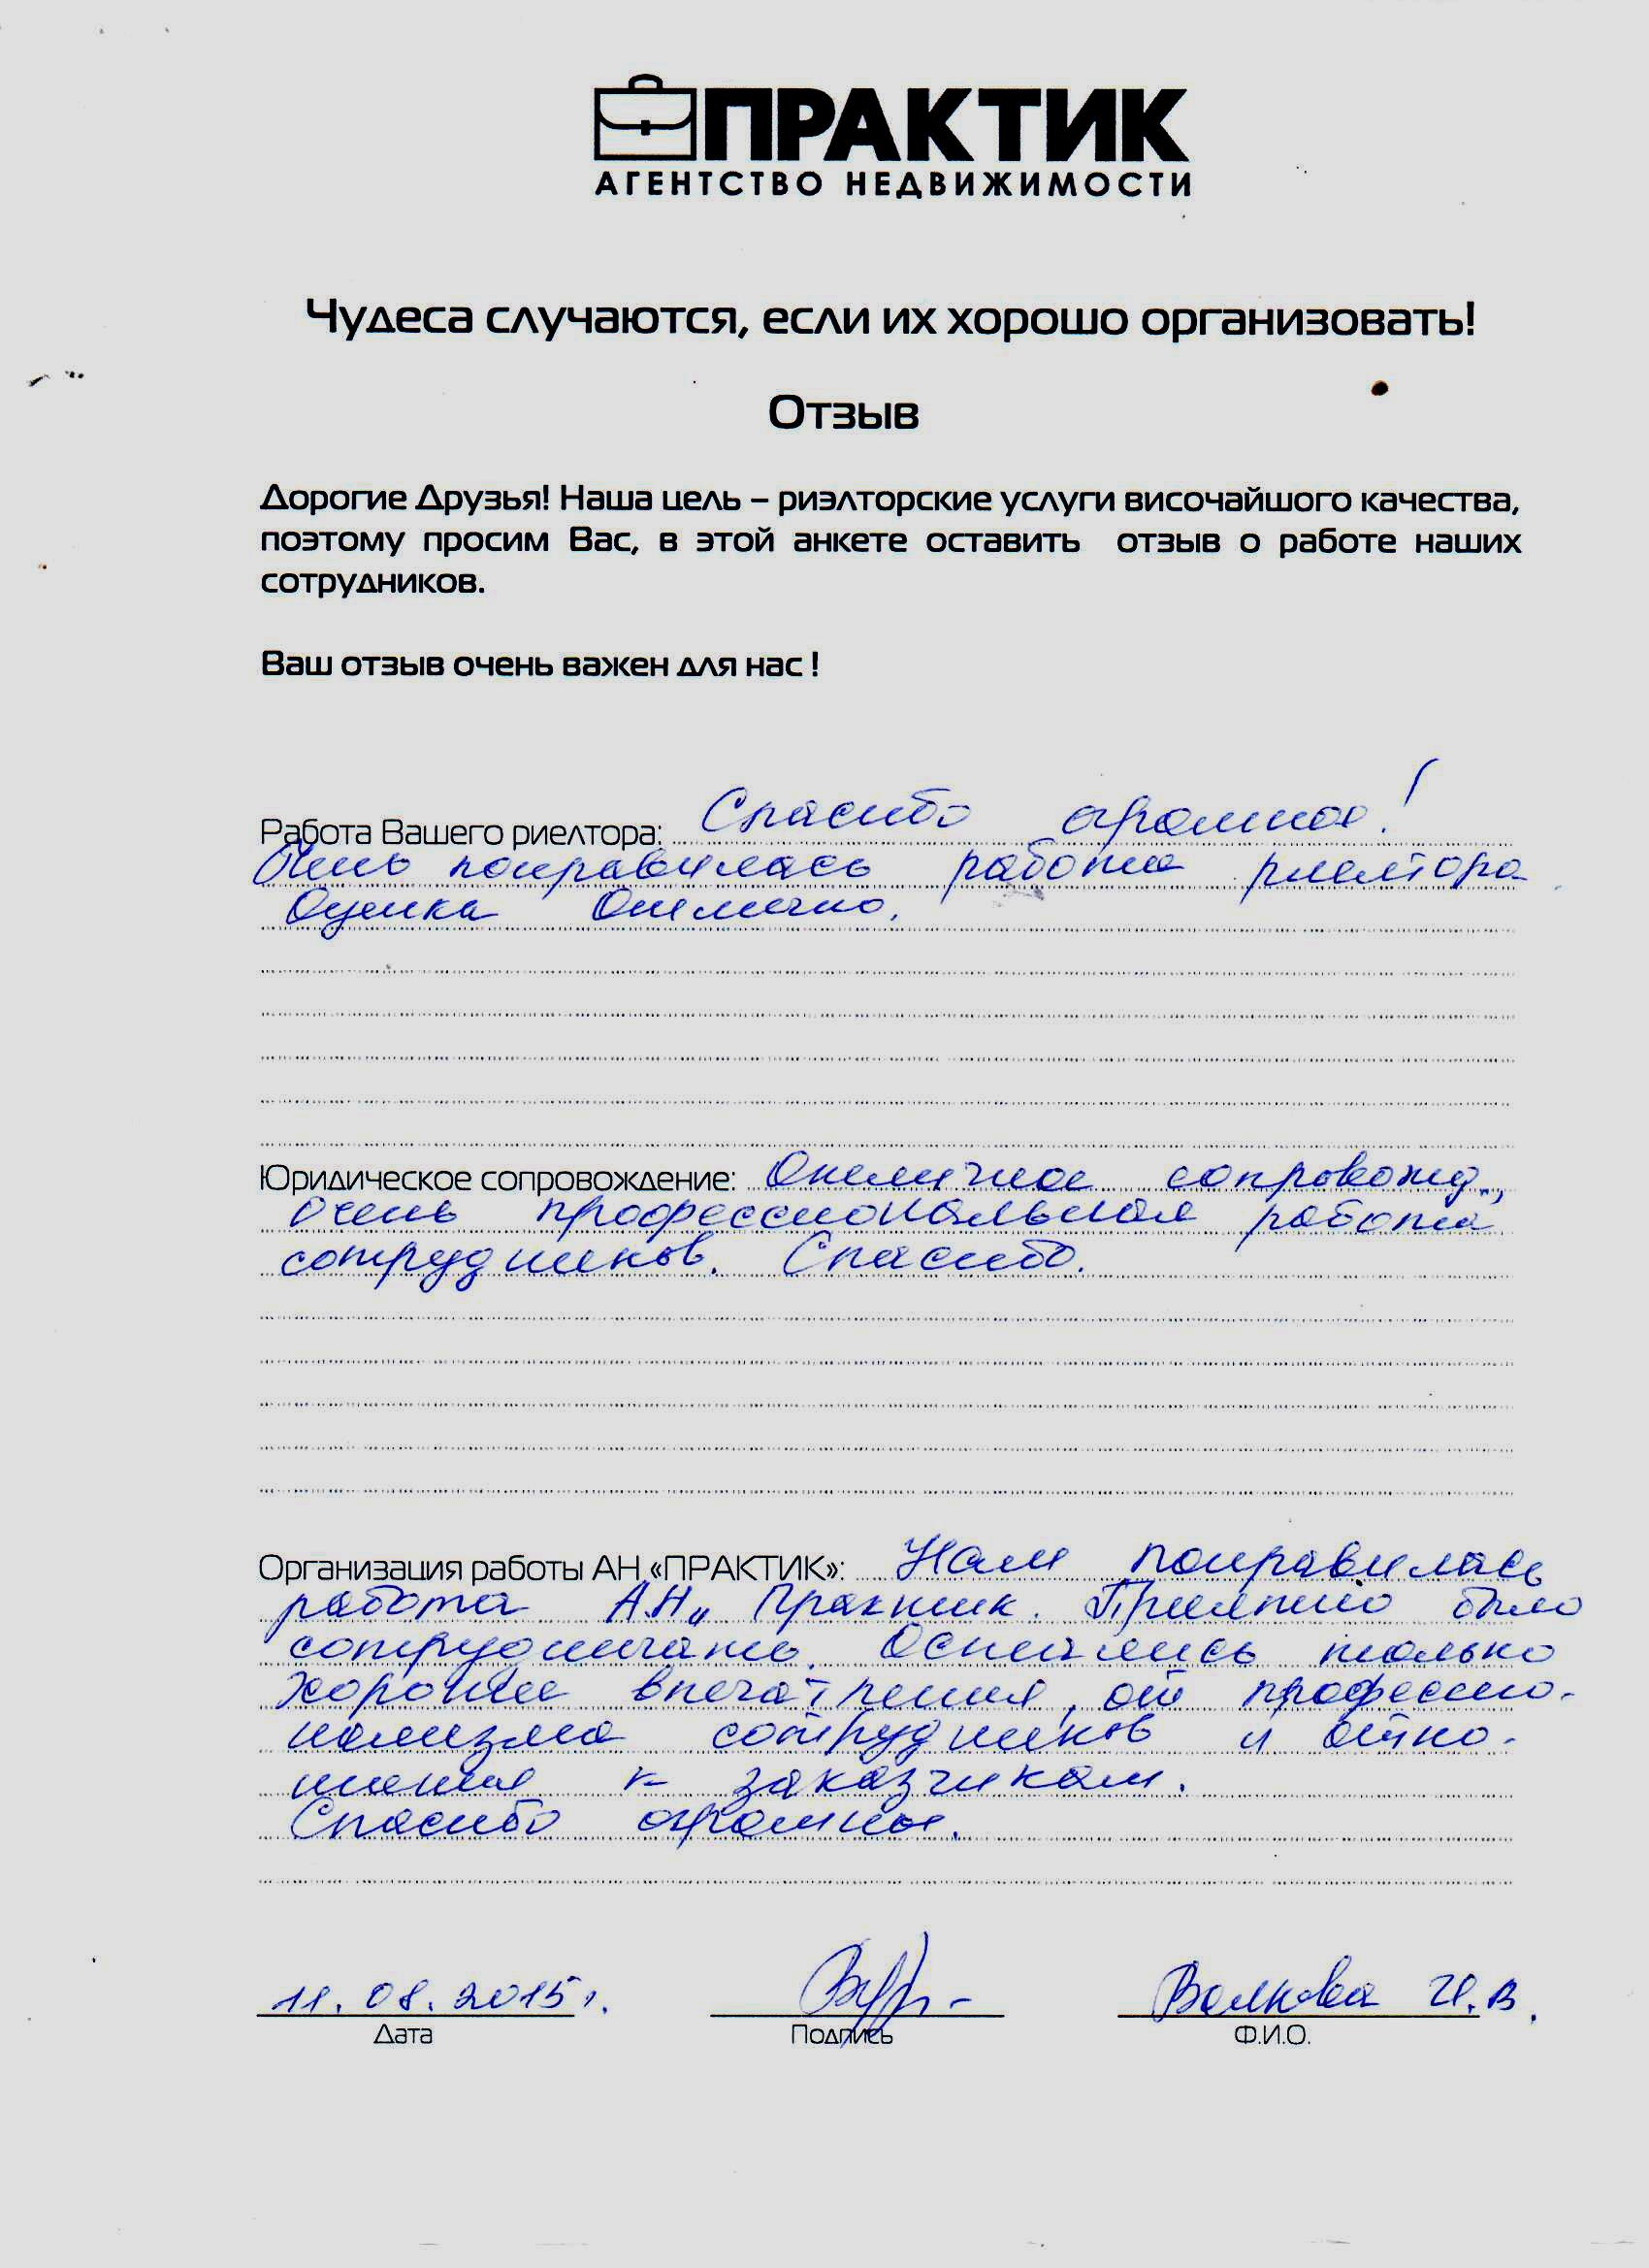 ПРАКТИК
АГЕНТСТВО НЕДВИЖИМОСТИ
Чудеса случаются, если их хорошо организовать!
Отзыв
Дорогие Друзья! Наша цель – риэлторские услуги височайшого качества,
поэтому просим Вас, в этой анкете оставить отзыв о работе наших
сотрудников.
Ваш отзыв очень важен для нас !
Работа Вашего риелтора: Спасибо огромное!
Очень понравилась работа риелтора
Оценка Отлично.
Юридическое сопровождение: Отличное сопровожд.,
очень профессиональная работа
сотрудников. Спасибо.
Организация работы АН «ПРАКТИК»: Нам понравилась
работа АН„ Практик. Приятно было
сотрудничать. Остались только
хорошие впечатления, от профессио-
нализма сотрудников и отно-
шения к заказчикам.
Спасибо огромное.
11.08.2015г. Волкова И.В.
Дата Подпись Ф.И.О.